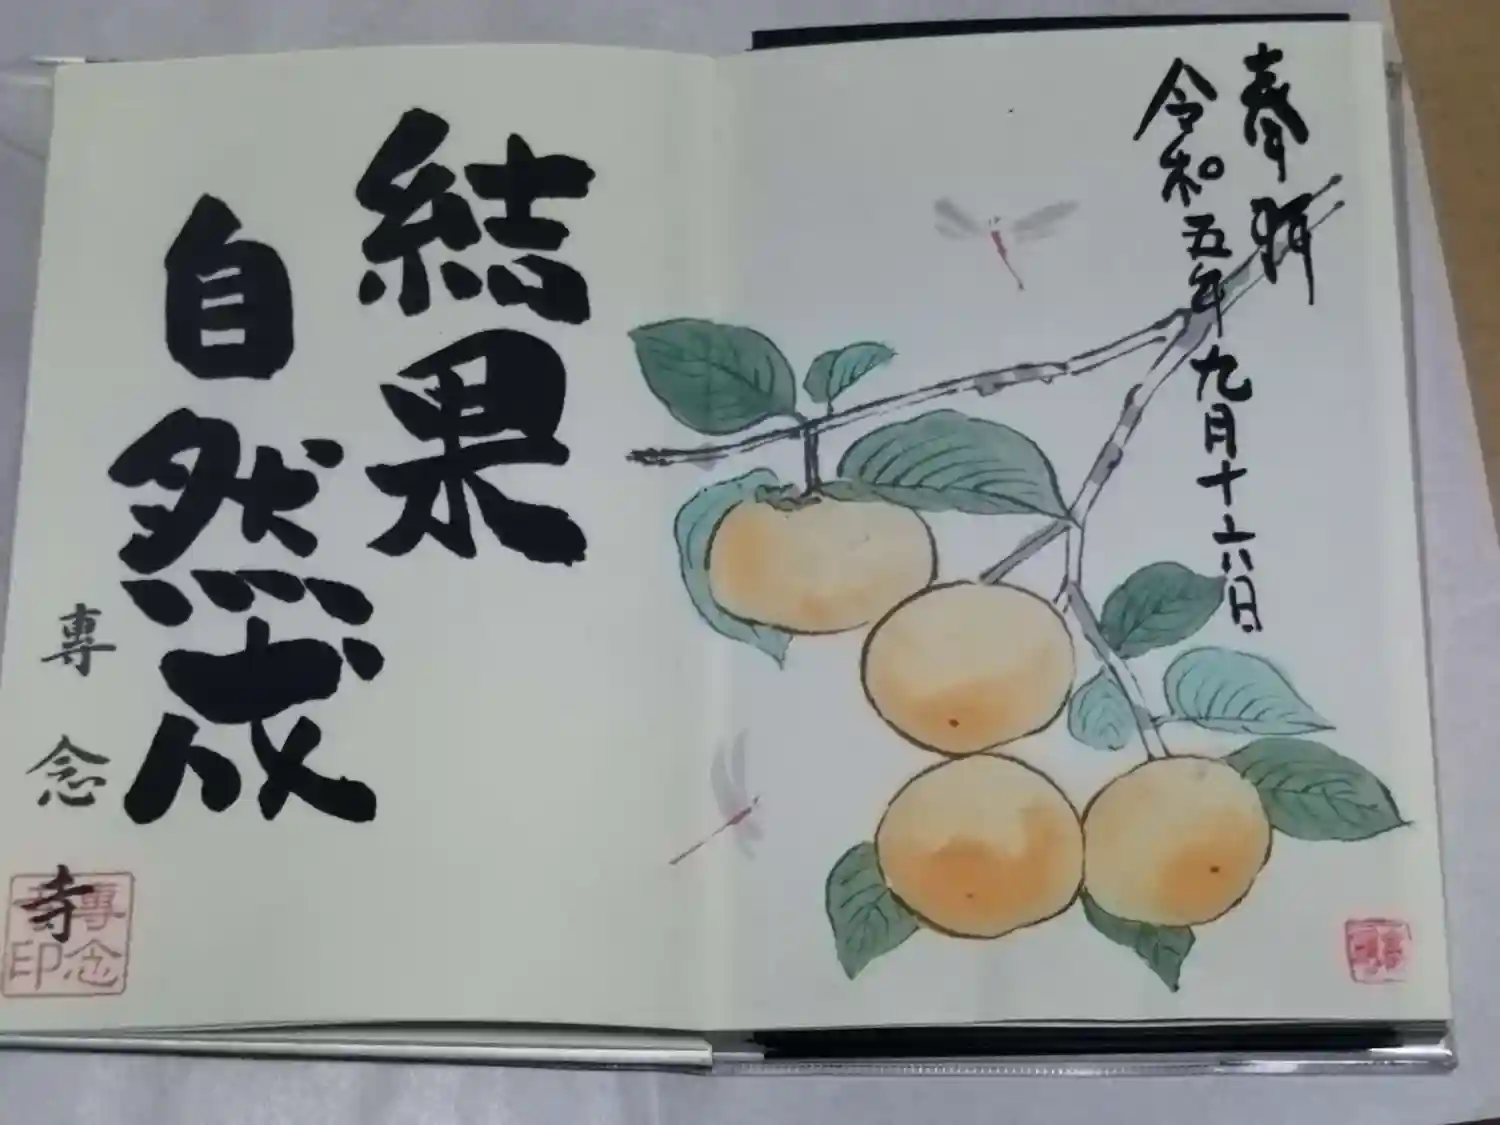 奉拜
令和五年九月十六日
結果
自然成
專念寺
專念
寺印